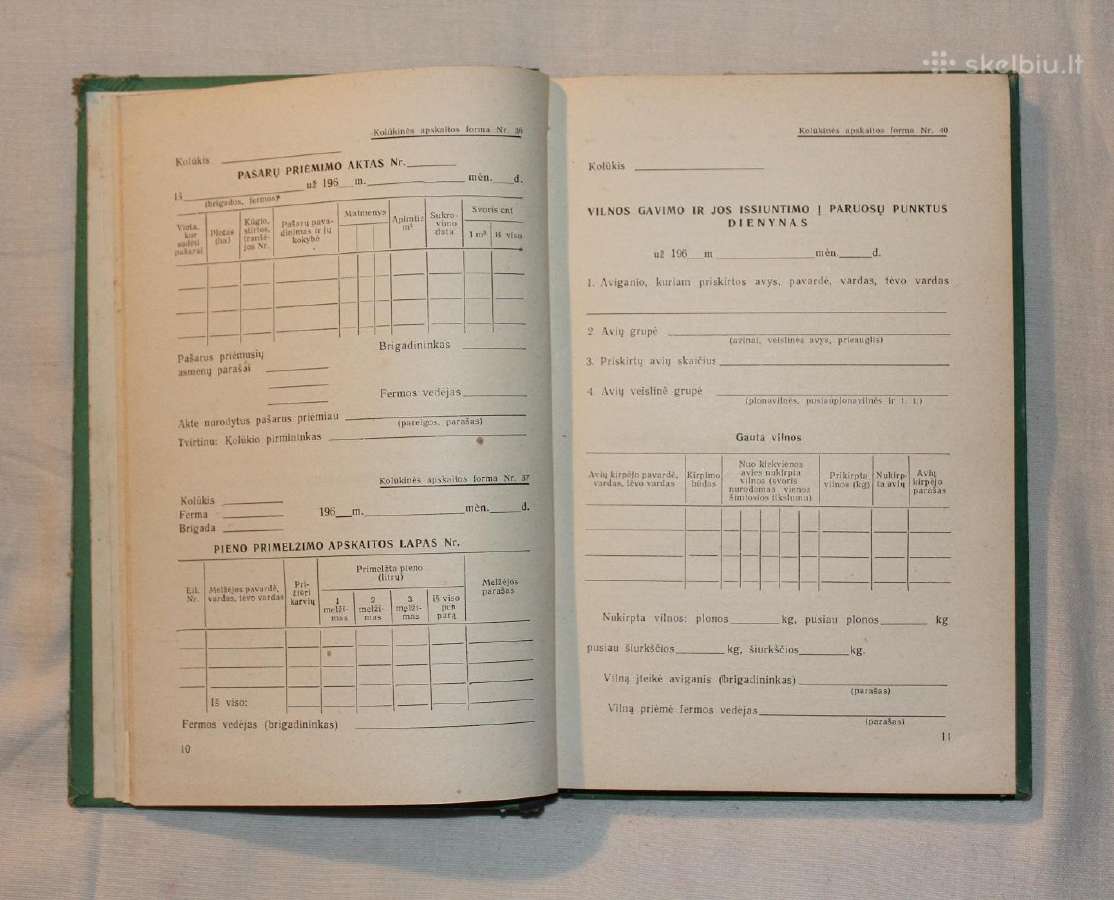 skelbiu.lt
Kolūkinės apskaitos forma Nr. 36
Kolūkis
PAŠARŲ PRIĖMIMO AKTAS Nr.
Iš už 196 m. mėn. d.
(brigados, fermos)
Vieta, kur sudėti pašarai
Plotas (ha)
Kūgio, stirtos, tranšėjos Nr.
Pašarų pavadinimas ir jų kokybė
Matmenys
Apimtis m³
Sukrovimo data
Svoris cnt
1 m³
iš viso
Pašarus priėmusių
asmenų parašai
Brigadininkas
Fermos vedėjas
Akte nurodytus pašarus priėmiau
(pareigos, parašas)
Tvirtinu: Kolūkio pirmininkas
Kolūkinės apskaitos forma Nr. 37
Kolūkis
Ferma
Brigada
196 m. mėn. d.
PIENO PRIMELŽIMO APSKAITOS LAPAS Nr.
Eil. Nr.
Melžėjos pavardė, vardas, tėvo vardas
Prižiūri karvių
Primelžta pieno (litrų)
1 melžimas
2 melžimas
3 melžimas
iš viso per parą
Melžėjos parašas
Iš viso:
Fermos vedėjas (brigadininkas)
10
Kolūkinės apskaitos forma Nr. 40
Kolūkis
VILNOS GAVIMO IR JOS IŠSIUNTIMO Į PARUOŠŲ PUNKTUS
DIENYNAS
už 196 m mėn. d.
1. Aviganio, kuriam priskirtos avys, pavardė, vardas, tėvo vardas
2. Avių grupė
(avinai, veislinės avys, prieauglis)
3. Priskirtų avių skaičius
4. Avių veislinė grupė
(plonavilnės, pusiauplonavilnės ir t. t.)
Gauta vilnos
Avių kirpėjo pavardė, vardas, tėvo vardas
Kirpimo būdas
Nuo kiekvienos avies nukirpta vilnos (svoris nurodomas vienos šimtosios tikslumu)
Prikirpta vilnos (kg)
Nukirpta avių
Avių kirpėjo parašas
Nukirpta vilnos: plonos kg, pusiau plonos kg
pusiau šiurkščios kg, šiurkščios kg.
Vilną įteikė aviganis (brigadininkas)
(parašas)
Vilną priėmė fermos vedėjas
(parašas)
11